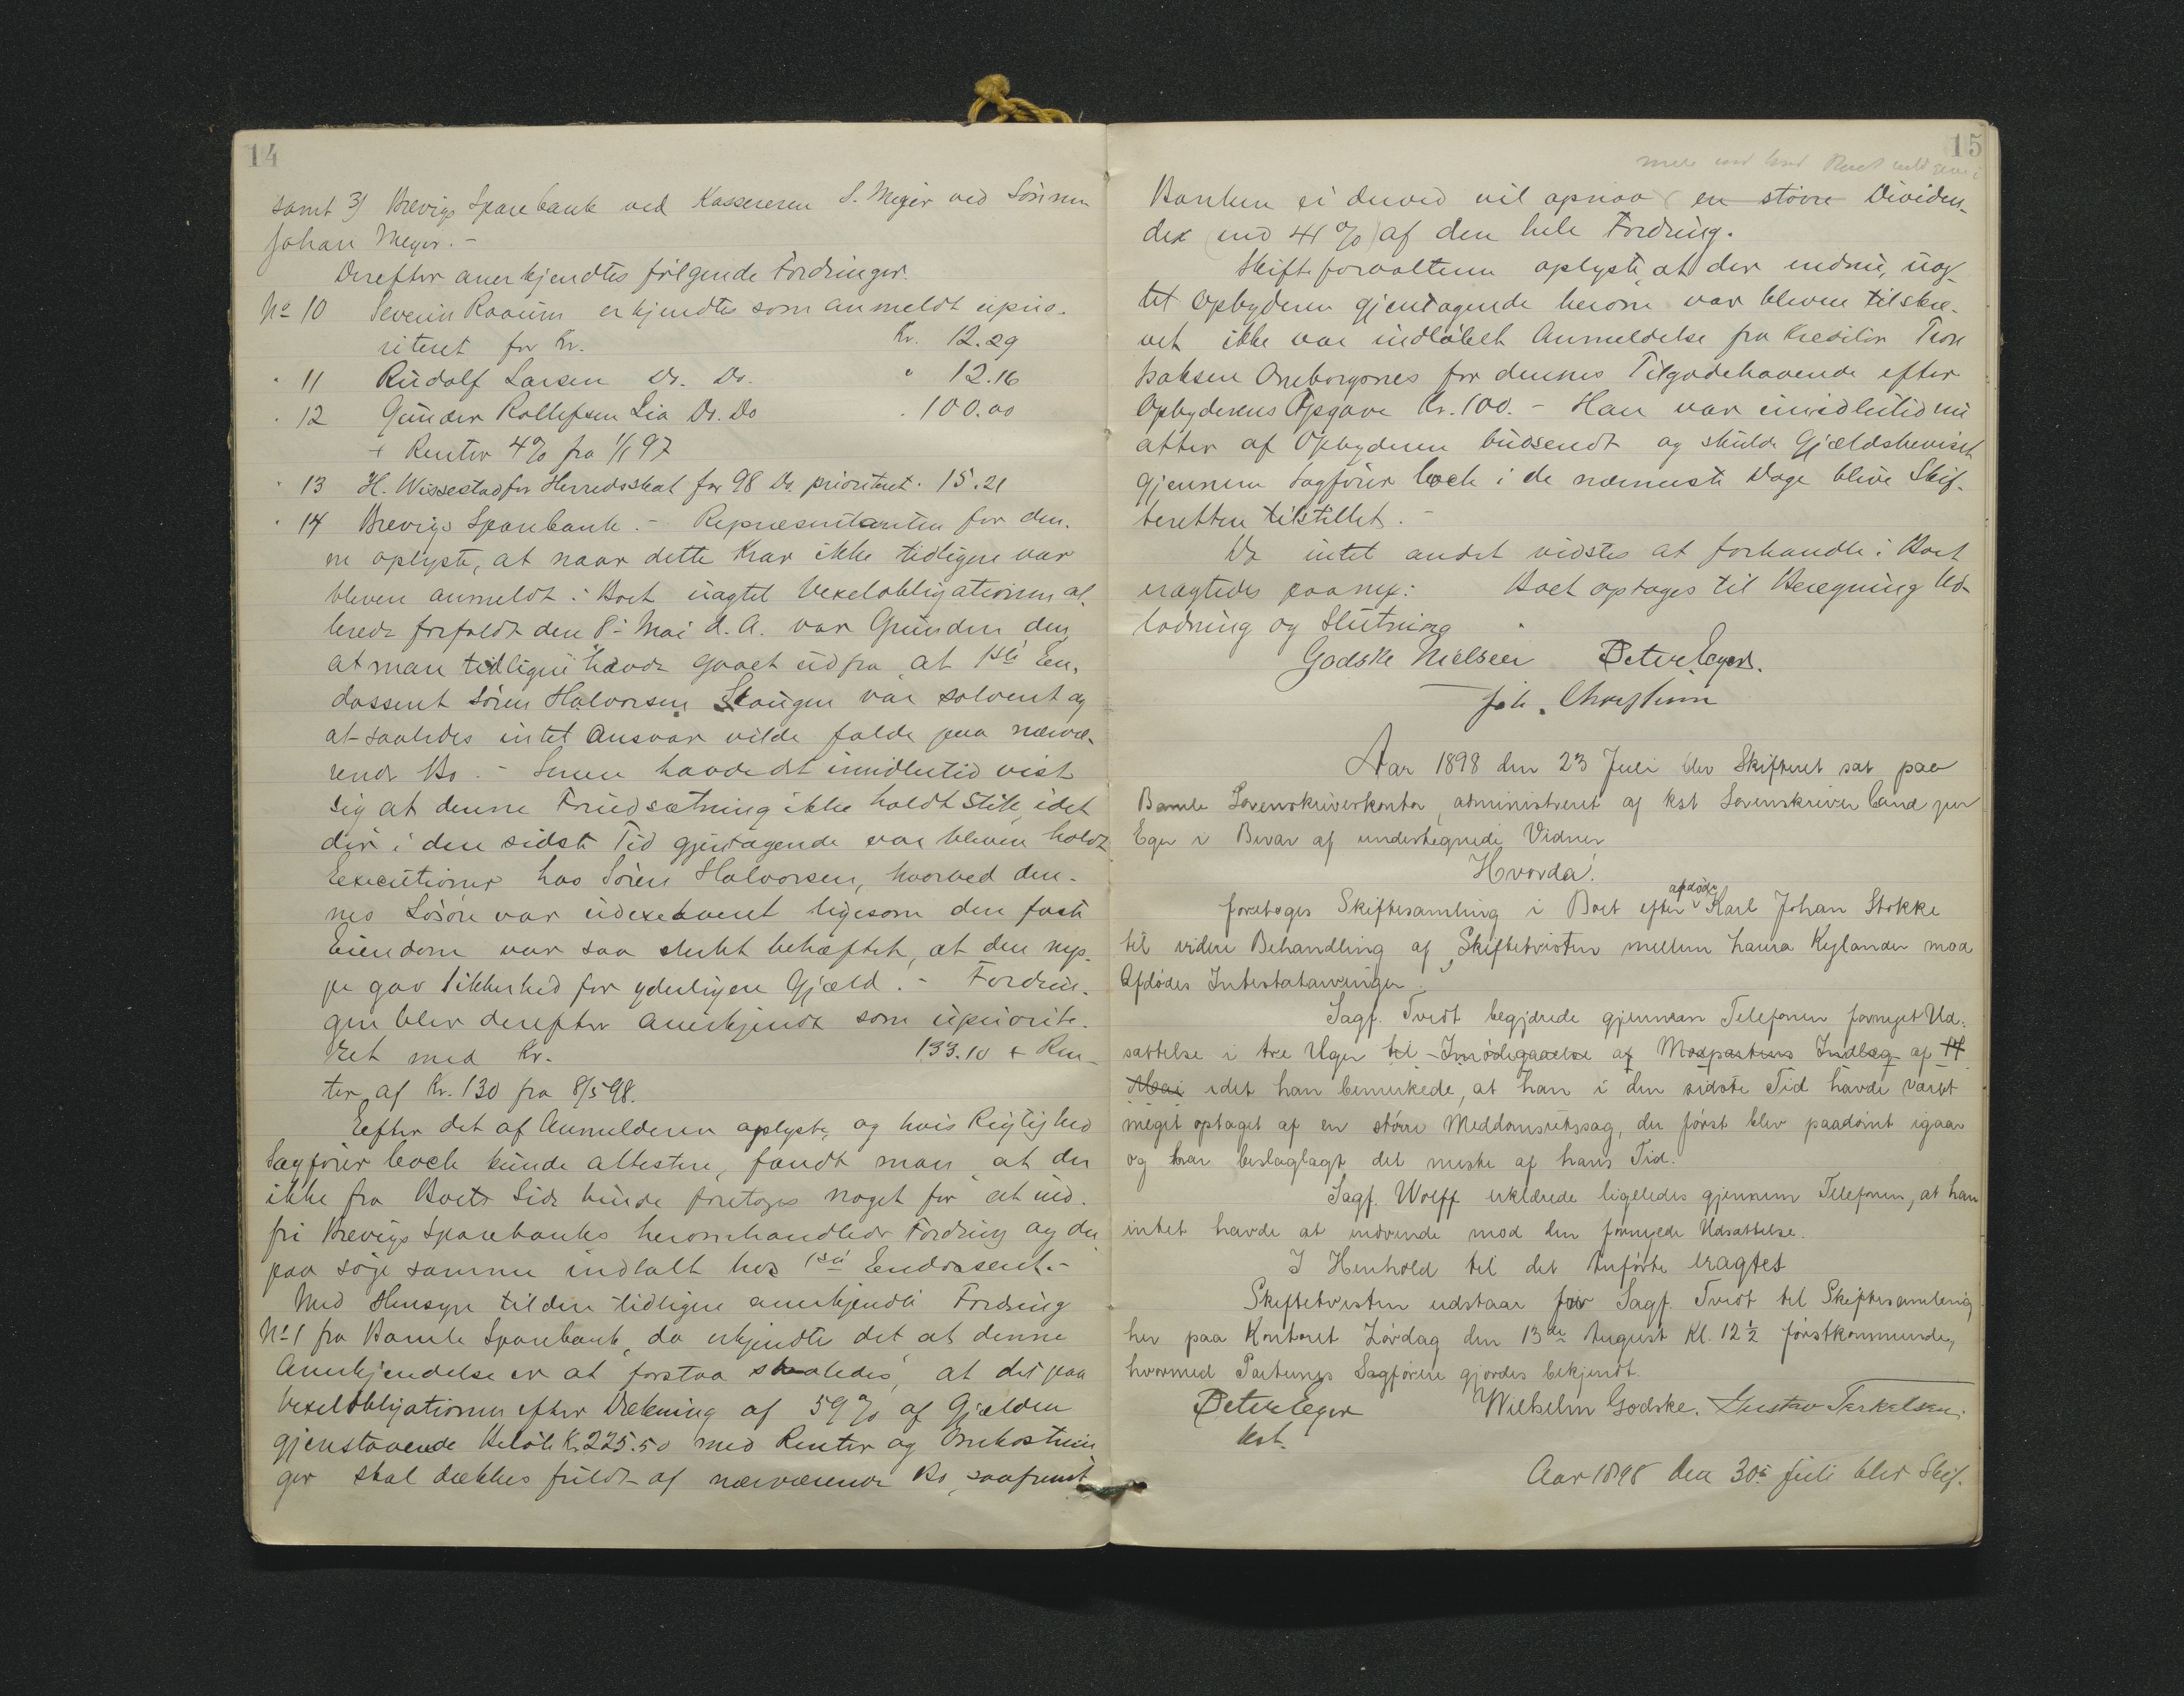 14
samt 3) Brevigs Sparebank ved Kassereren S. Meyer ved Sönnen
Johan Meyer. -
Derefter anerkjendtes fölgende Fordringer.
No 10 Severin Raaum erkjendtes som anmeldt uprio-
riteret for Kr. Kr. 12.29
" 11 Rudolf Larsen Do. Do. " 12.16
" 12 Gunder Rollefsen Lia Do. Do " 100.00
+ Renter 4% fra 1/1 97
" 13 H. Wissestad for Herredsskat for 98 Do. prioriteret. 15.21
" 14 Brevigs Sparebank. - Repræsentanten for den-
ne oplyste, at naar dette Krav ikke tidligere var
bleven anmeldt i Boet uagtet Vexelobligationen al-
lerede forfaldt den 8de Mai d. A. var Grunden den,
at man tidligere havde gaaet ud fra, at 1ste En-
dossent Sören Halvorsen Skougen var solvent og
at saaledes intet Ansvar vilde falde paa nærvæ-
rende Bo. - Senere havde det imidlertid vist
sig at denne Forudsætning ikke holdt Stik, idet
der i den sidste Tid gjentagende var bleven holdt
Executioner hos Sören Halvorsen, hvorved den-
nes Lösöre var udexekveret ligesom den faste
Eiendom var saa sterkt behæftet, at den nep-
pe gav Sikkerhed for yderligere Gjæld. - Fordrin-
gen blev derefter anerkjendt som upriorite-
ret med Kr. 133.10 + Ren-
ter af Kr. 130 fra 8/5 98.
Efter det af Anmelderen oplyste, og hvis Rigtighed
Sagförer Coch kunde attestere, fandt man at der
ikke fra Boets Side burde foretages noget for at ind-
fri Brevigs Sparebanks heromhandlede Fordring og der
paa söge samme indtalt hos 1ste Endossent. -
Med Hensyn til den tidligere anerkjendte Fordring
No 1 fra Bamle Sparebank, da erkjendte det at denne
Anerkjendelse er at forstaa saaledes, at det paa
Vexelobligationen efter Dækning af 59% af Gjælden
gjenstaaende Belöb Kr. 225.50 med Renter og Omkostnin
ger skal dækkes fuldt af nærværende Bo, saafremt
15
Banken ei derved vil opnaa (en större Dividen-
de (end 41%) af den hele Fordring.
Skifteforvalteren oplyste, at der endnu, uag-
tet Opbyderen gjentagende herom var bleven tilskre-
vet ikke var indlöbet Anmeldelse fra Kreditor Tron
Isaksen Omborgsnes for dennes Tilgodehavende efter
Opbyderens Opgave Kr. 100. - Han var imidlertid nu
atter af Opbyderen budsendt og skulde Gjældsbeviset
gjennem Sagförer Coch i de nærmeste Dage blive Skif-
teretten tilstillet. -
Da intet andet vidstes at forhandle i Boet
eragtedes paany: Boet optages til Beregning Ud-
lodning og Slutning
Godske Nielsen Peter Eger.
Joh. Christensen
Aar 1898 den 23 Juli blev Skifteret sat paa
Bamle Sorenskriverkontor, administreret af kst Sorenskriver Cand jur
Eger i Overvær af undertegnede Vidner
Hvorda!
foretoges Skiftesamling i Boet efter afdöde Karl Johan Stokke
til videre Behandling af Skiftetvisten mellem Laura Kylander mod
Afdödes Intestatarvinger.
Sagf. Tvedt begjærede gjennem Telefonen fornyet Ud-
sættelse i tre Uger til Imödegaaelse af Modpartens Indlæg af 14
Mai idet han bemerkede, at han i den sidste Tid havde været
meget optaget af en större Meddomsretssag, der först blev paadömt igaar
og har beslaglagt det meste af hans Tid.
Sagf. Wolff erklærede ligeledes gjennem Telefonen, at han
intet havde at indvende mod den fornyede Udsættelse.
I Henhold til det Anförte eragtet
Skiftetvisten udstaar for Sagf. Tvedt til Skiftesamling
her paa Kontoret Lördag den 13de August Kl. 12 1/2 förstkommende,
hvormed Parternes Sagförere gjordes bekjendt.
Peter Eger Wilhelm Godske. Gustav Terkelsen.
kst.
Aar 1898 den 30te Juli blev Skif-